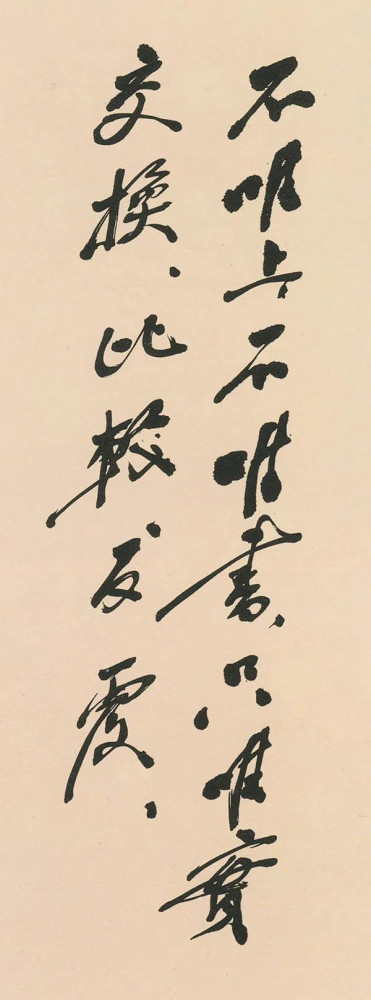 不唯上不唯書、只唯實
交換、比較、反覆、